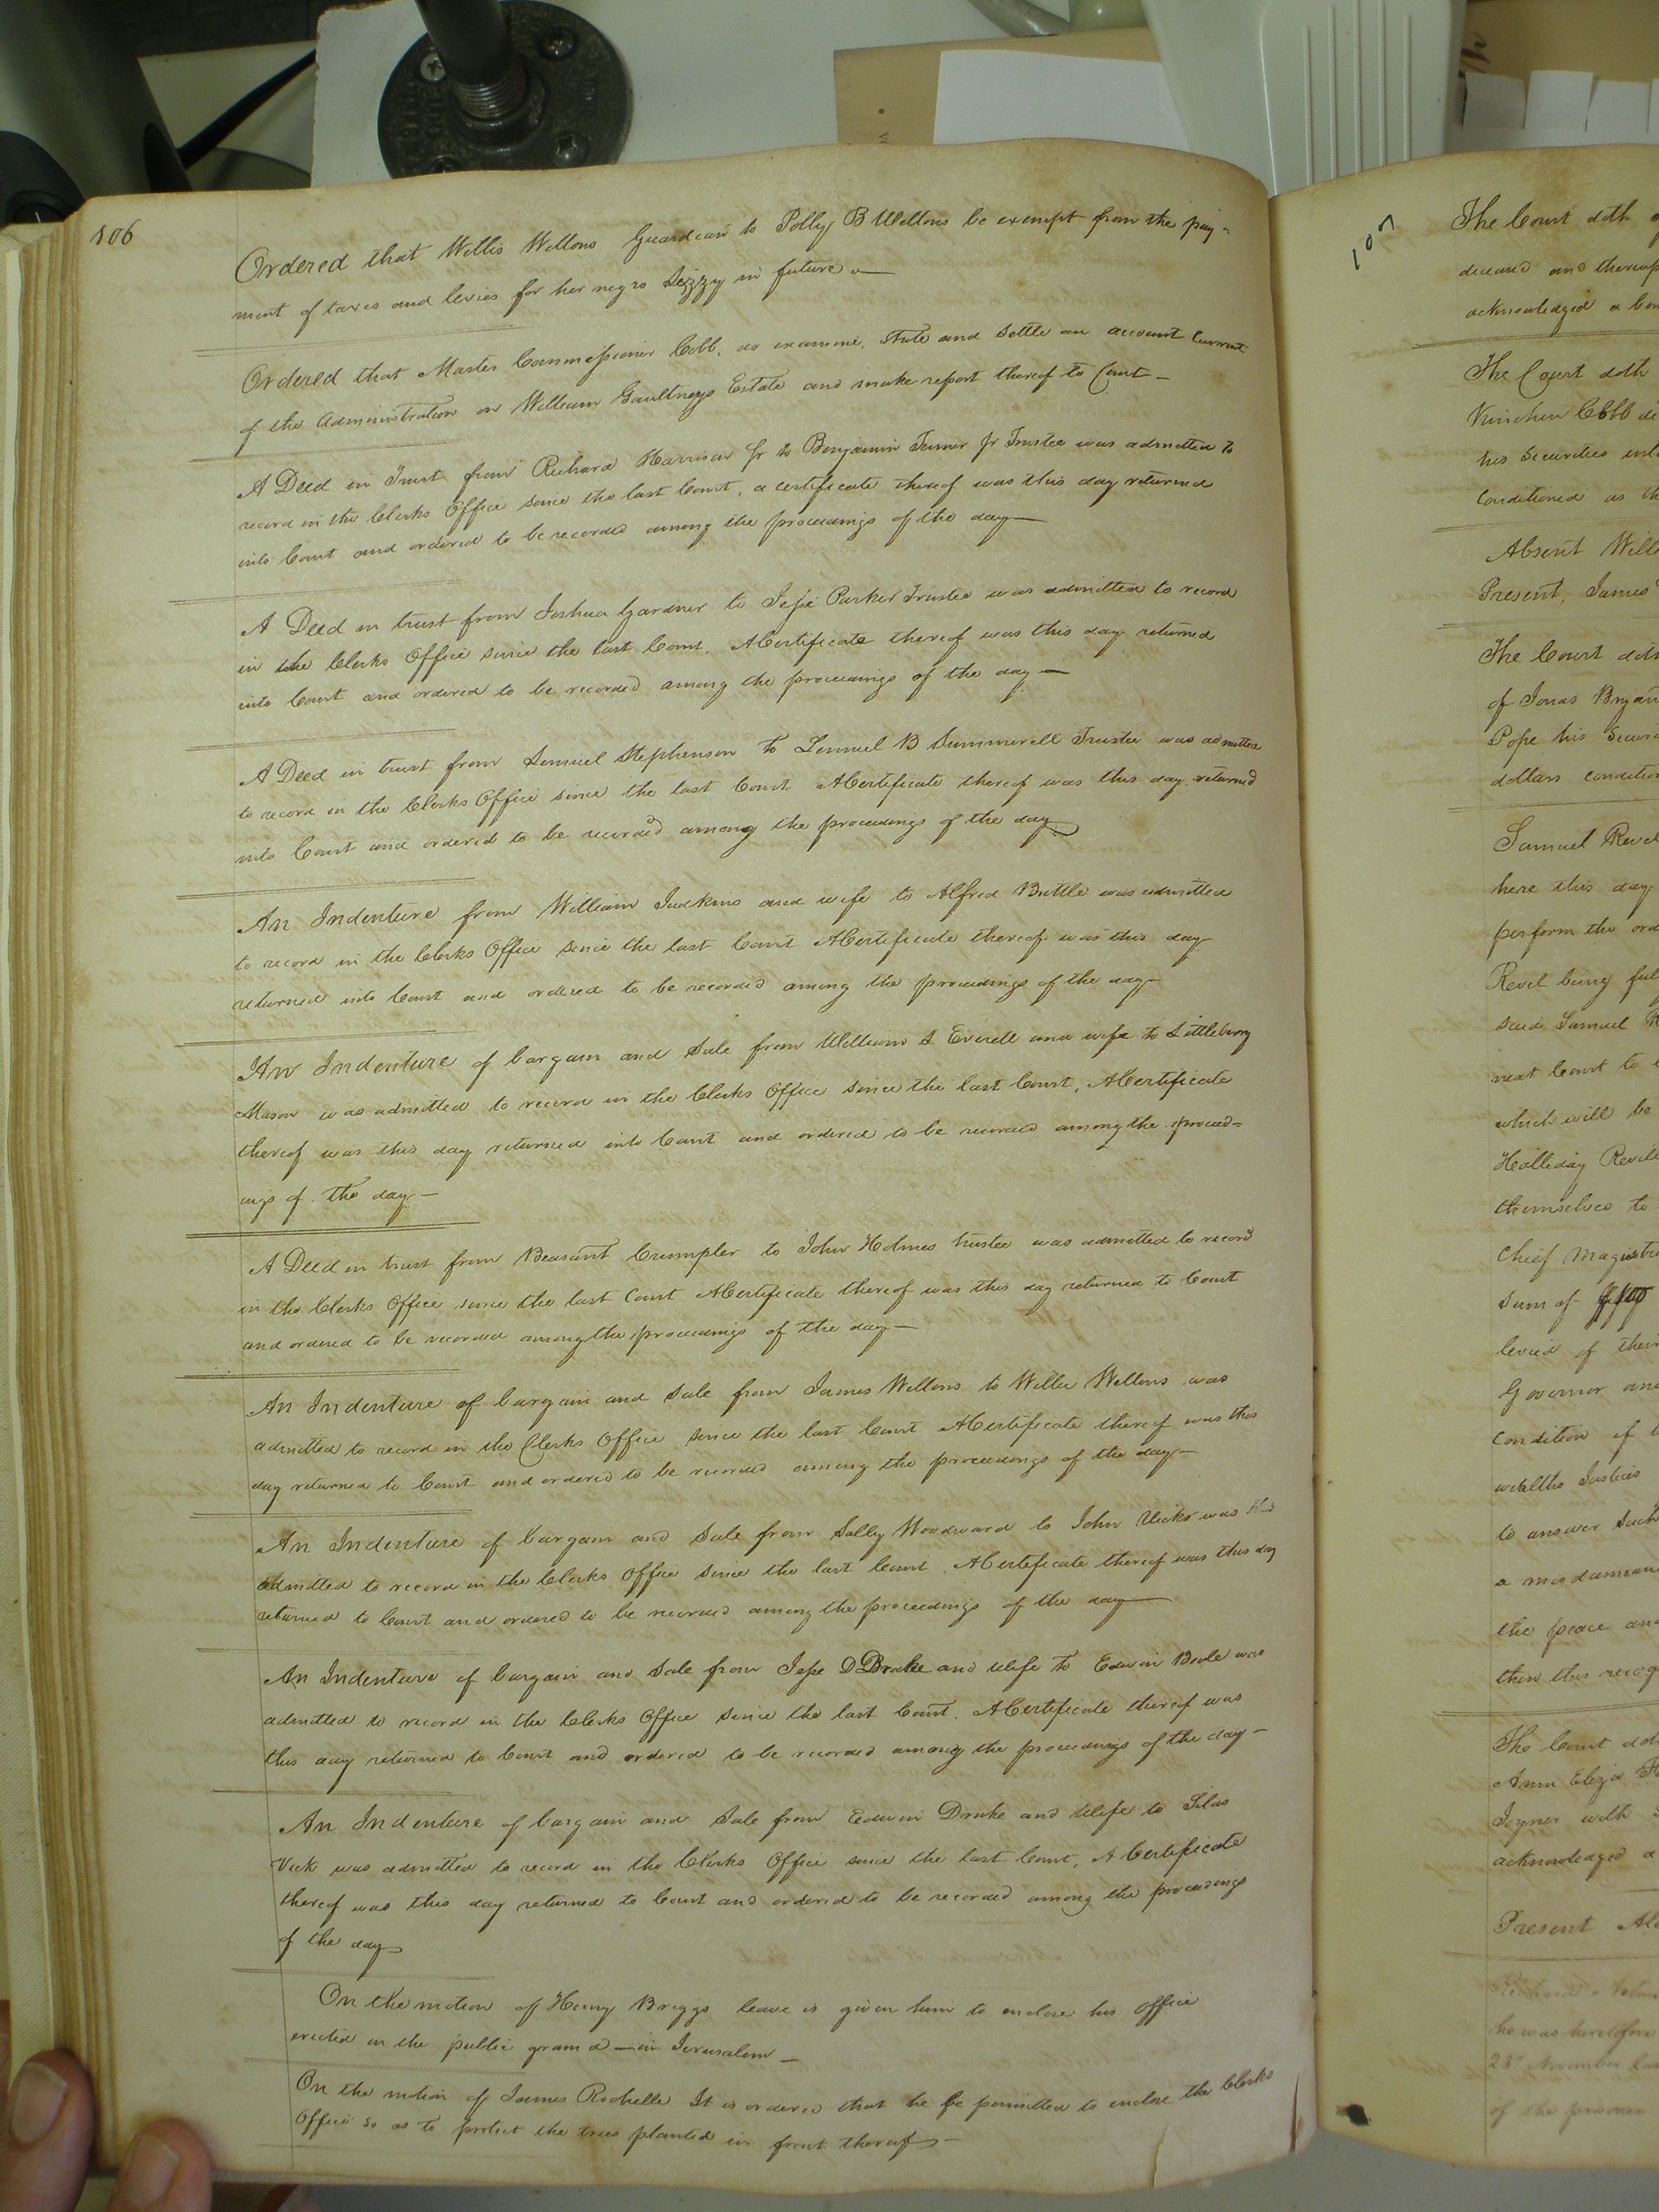 106
Ordered that Willis Wellons Guardian to Polly B Wellons be exempt from the pay-
ment of taxes and levies for her negro Lizzy in future
Ordered that Master Commissioner Cobb, do examine, state and settle an account Current
of the Administration on William Gaultneys Estate and make report thereof to Court
A Deed in Trust from Richard Harrison Jr to Benjamin Turner Jr Trustee was admitted to
record in the Clerks Office since the last Court, a certificate thereof was this day returned
into Court and ordered to be recorded among the proceedings of the day
A Deed in trust from Joshua Gardner to Jesse Parker Trustee was admitted to record
in the Clerks Office since the last Court. A Certificate thereof was this day returned
into Court and ordered to be recorded among the proceedings of the day
A Deed in trust from Lemuel Stephenson to Lemuel B Summerell Trustee was admitted
to record in the Clerks Office since the last Court A Certificate thereof was this day returned
into Court and ordered to be recorded among the proceedings of the day
An Indenture from William Judkins and wife to Alfred Buttle was admitted
to record in the Clerks Office since the last Court A Certificate thereof was this day
returned into Court and ordered to be recorded among the proceedings of the day
An Indenture of bargain and Sale from William S Everett and wife to Littleberry
Mason was admitted to record in the Clerks Office since the last Court, A Certificate
thereof was this day returned into Court and ordered to be recorded among the proceed-
ings of the day
A Deed in trust from Beasant Crumpler to John Holmes trustee was admitted to record
in the Clerks Office since the last Court A Certificate thereof was this day returned to Court
and ordered to be recorded among the proceedings of the day
An Indenture of bargain and Sale from James Wellons to Willie Wellons was
admitted to record in the Clerks Office since the last Court A Certificate thereof was this
day returned to Court and ordered to be recorded among the proceedings of the day
An Indenture of bargain and Sale from Sally Woodward to John Vicks was
admitted to record in the Clerks Office since the last Court. A Certificate thereof was this day
returned to Court and ordered to be recorded among the proceedings of the day
An Indenture of bargain and Sale from Jesse D Drake and Wife to Edwin Beale was
admitted to record in the Clerks Office since the last Court. A Certificate thereof was
this day returned to Court and ordered to be recorded among the proceedings of the day
An Indenture of bargain and Sale from Edwin Drake and Wife to Silas
Vick was admitted to record in the Clerks Office since the last Court, A Certificate
thereof was this day returned to Court and ordered to be recorded among the proceedings
of the day
On the motion of Henry Briggs leave is given him to enclose his Office
erected on the public ground in Jerusalem
On the motion of James Rochelle It is ordered that he be permitted to enclose the Clerks
Office so as to protect the trees planted in front thereof
107
The Court doth
deceased and
acknowledged a
The Court doth
Kinchen Cobb
his Securities
Conditioned as
Absent
Present, James
The Court
of Jonas
Pope his
dollars
Samuel
here this day
perform the
Revel being
said Samuel
next Court to
which will be
Halliday
themselves to
Chief
Sum of
levied of
Governor and
Condition of
wealths Justices
to answer such
a
the peace and
then this
The Court
Ann Eliza
Joyner with
acknowledged a
Present
he was heretofore
November
of the prisoner